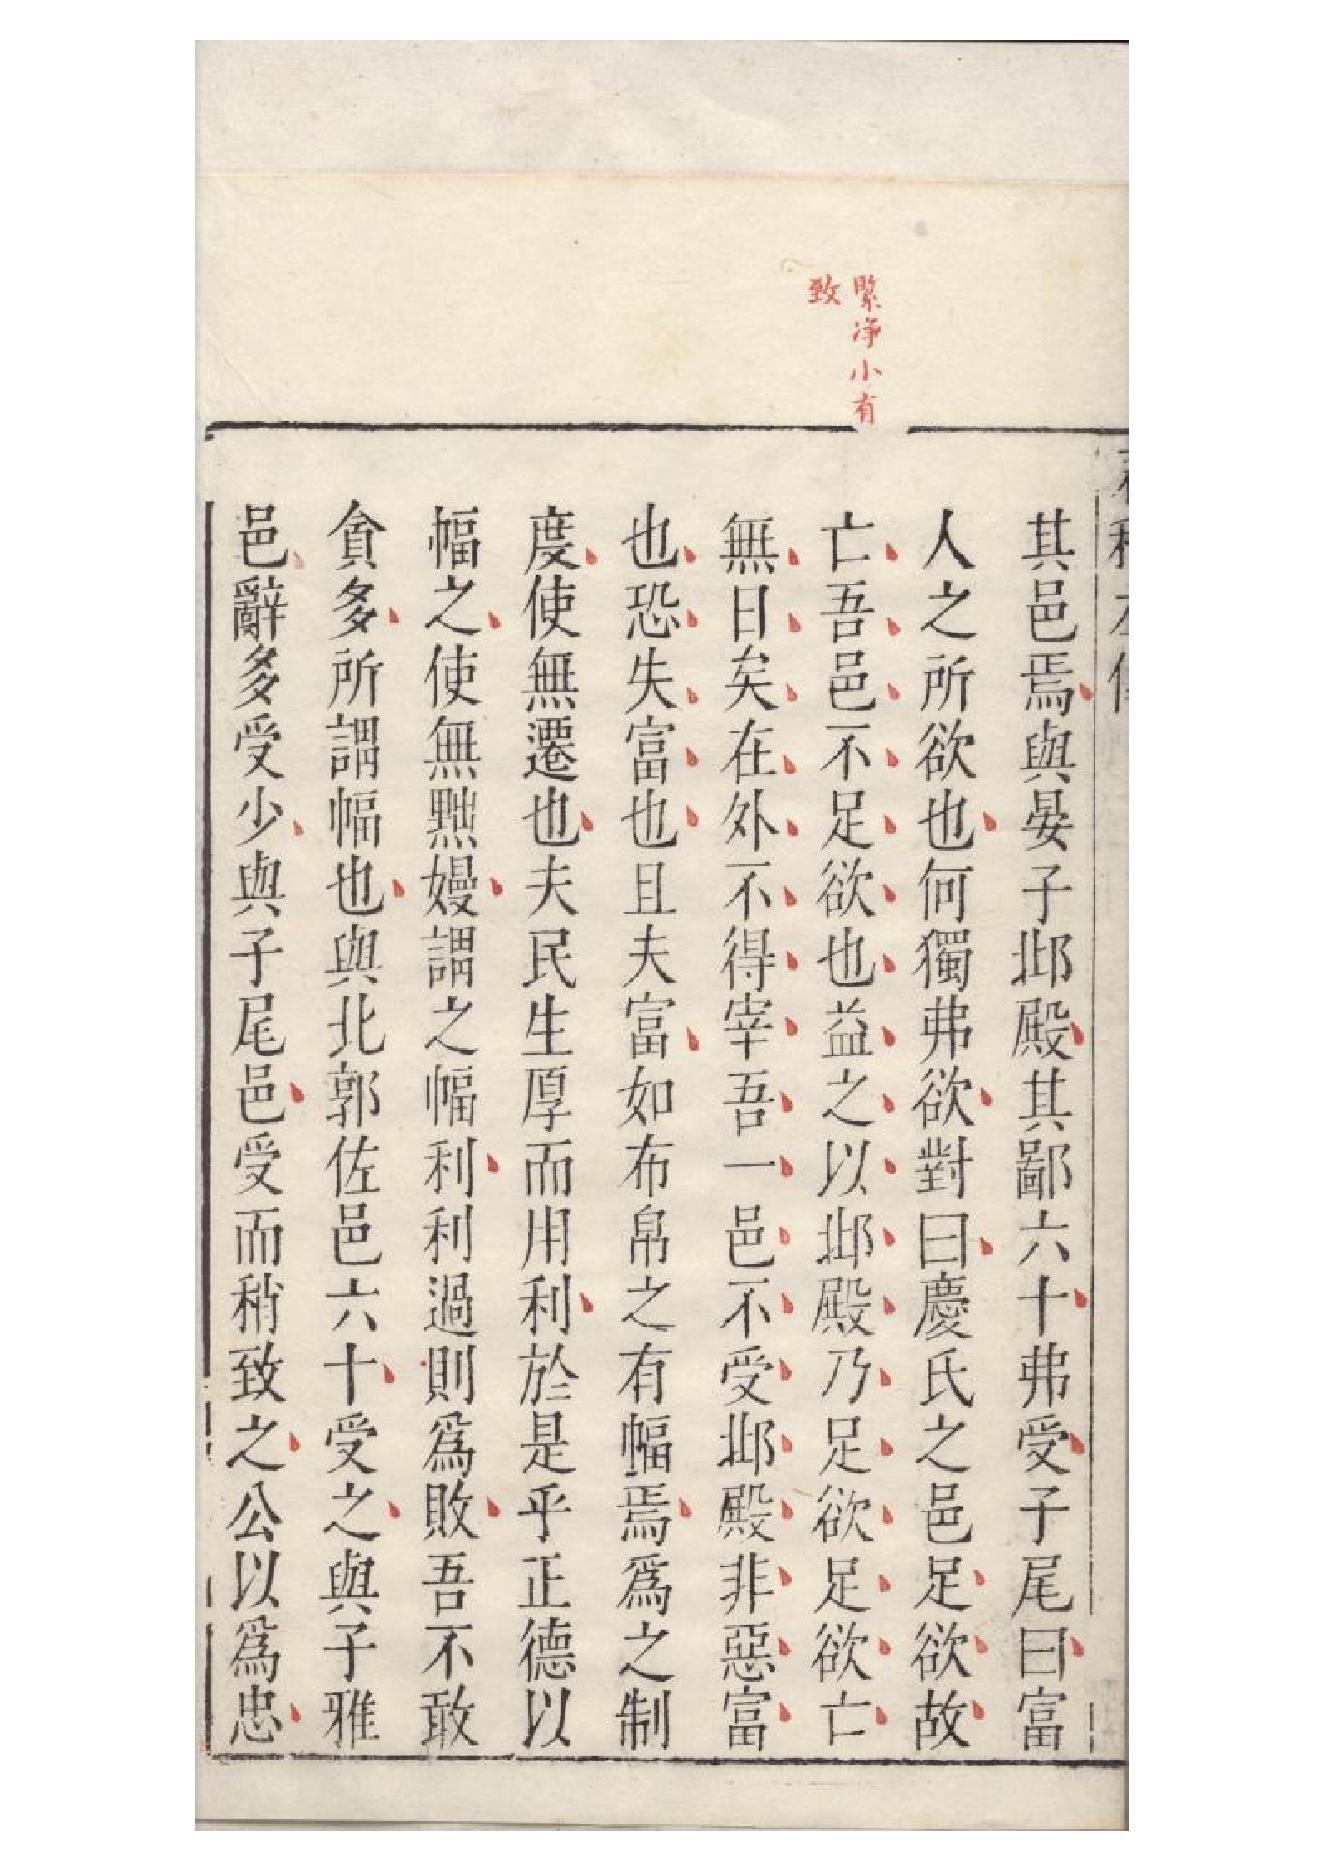 緊净小有
致
其邑焉與晏子邶殿其鄙六十弗受子尾曰富
人之所欲也何獨弗欲對曰慶氏之邑足欲故
亡吾邑不足欲也益之以邶殿乃足欲足欲亡
無日矣在外不得宰吾一邑不受邶殿非惡富
也恐失富也且夫富如布帛之有幅焉爲之制
度使無遷也夫民生厚而用利於是乎正德以
幅之使無黜嫚謂之幅利利過則爲敗吾不敢
貪多所謂幅也與北郭佐邑六十受之與子雅
邑辭多受少與子尾邑受而稍致之公以爲忠